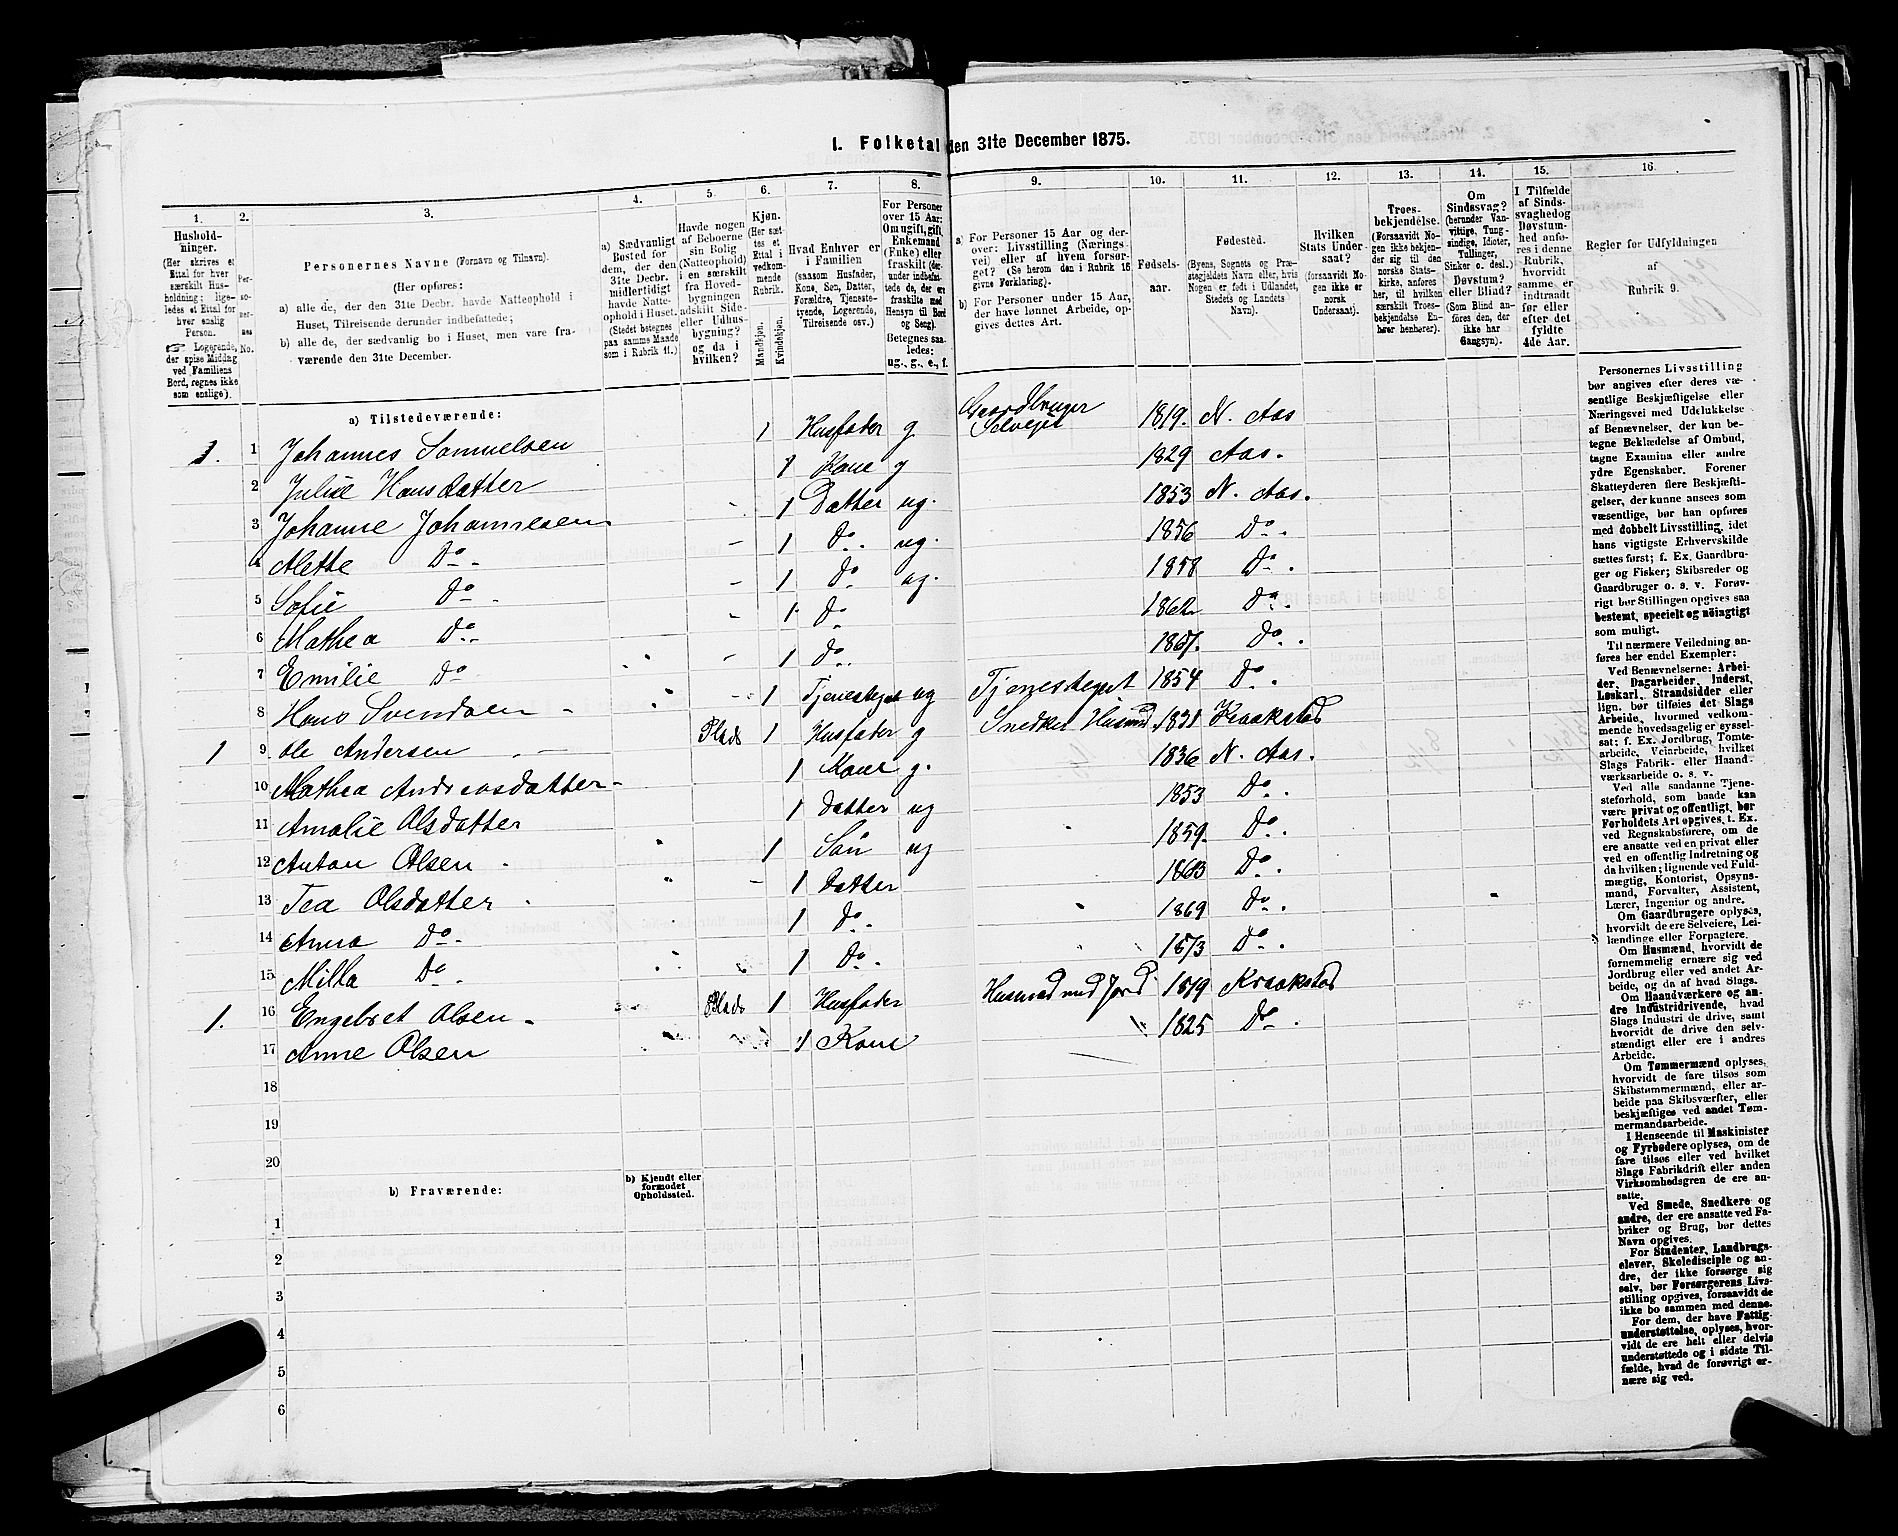 1. Folketal den 31te December 1875.
1. 2. 3. 4. 5. 6. 7. 8. 9. 10. 11. 12. 13. 14. 15. 16.
Hushold-
ninger.
(Her skrives et
Ettal for hver
særskilt Hus-
holdning; lige-
ledes et Ettal for
hver enslig
Person.
☞ Logerende,
der spise Middag
ved Familiens
Bord, regnes ikke
som enslige).
Per-
so-
ner-
nes
No.
Personernes Navne (Fornavn og Tilnavn).
(Her opføres:
a) alle de, der den 31te Decbr. havde Natteophold i
Huset, Tilreisende derunder indbefattede;
b) alle de, der sædvanlig bo i Huset, men vare fra-
værende den 31te December.
a) Sædvanligt
Bosted for
dem, der den
31te Decbr.
midlertidigt
havde Natte-
ophold i Huset.
(Stedet betegnes
paa samme Maade
som i Rubrik 11.)
Havde nogen
af Beboerne
sin Bolig
(Natteophold)
i en særskilt
fra Hoved-
bygningen
adskilt Side-
eller Udhus-
bygning?
og da i
hvilken?
Kjøn.
(Her sæt-
tes et
Ettal i
vedkom-
mende
Rubrik.
Mandkjøn.
Kvindekjøn.
Hvad Enhver er
i Familien
(saasom Husfader,
Kone, Søn, Datter,
Forældre, Tjeneste-
tyende, Logerende,
Tilreisende osv.)
For Personer
over 15 Aar:
Om ugift, gift,
Enkemand
(Enke) eller
fraskilt (der-
under indbefat-
tede de, der ere
fraskilte med
Hensyn til Bord
og Seng).
Betegnes saa-
ledes:
ug., g., e., f.
a) For Personer 15 Aar og der-
over: Livsstilling (Nærings-
vei) eller af hvem forsør-
get? (Se herom den i Rubrik 16
givne Forklaring).
b) For Personer under 15 Aar,
der have lønnet Arbeide, op-
gives dettes Art.
Fødsels-
aar.
Fødested.
(Byens, Sognets og Præ-
stegjeldets Navn eller, hvis
Nogen er født i Udlandet,
Stedets og Landets
Navn).
Hvilken
Stats Under-
saat?
(forsaavidt No-
gen ikke er
norsk
Undersaat).
Troes-
bekjendelse.
(Forsaavidt No-
gen ikke bekjen-
der sig til den
norske Stats-
kirke, anføres
her, til hvilken
særskilt Troes-
bekjendelse En-
hver henhører).
Om
Sindssvag?
(herunder Van-
vittige, Tung-
sindige, Idioter,
Tullinger,
Sinker o. desl.)
Døvstum?
eller Blind?
(Som Blind an-
føres den, der
ikke har
Gangsyn).
I Tilfælde
af Sinds-
svaghed og
Døvstum-
hed anfø-
res i denne
Rubrik,
hvorvidt
samme er
indtraadt
før eller
efter det
fyldte
4de Aar.
Regler for Udfyldningen
af
Rubrik 9.
a) Tilstedeværende:
1. 1 Johannes Samuelsen 1 Husfader g Gaardbruger Selveier 1819. N. Aas
2 Julie Hansdatter 1 Kone g 1829 Aas.
3 Johanne Johannesen 1 Datter ug. 1853 N. Aas.
4 Alette Do 1 Do. ug. 1856 Do.
5 Sofie Do 1 Do ug. 1858 Do.
6 Mathea Do 1 Do 1862 Do.
7 Emilie Do 1 Do. 1867. Do.
8 Hans Svendsen 1 Tjenestegut ug Tjenestegut 1854 Do.
1 9 Ole Andersen Plads 1 Husfader g Snedker Husmd. 1831 Kraakstad
10 Mathea Andreasdatter 1 Kone g. 1836 N. Aas.
11 Amalie Olsdatter 1 Datter ug 1853 Do.
12 Anton Olsen 1 Søn ug 1859. Do.
13 Tea Olsdatter 1 Datter 1863 Do.
14 Anna Do. 1 Do. 1869 Do.
15 Milla Do 1 Do. 1873 Do.
1. 16 Engebret Olsen Plads 1 Husfader Husmad med Jord 1819 Kraakstad
17 Anne Olsen 1 Kone 1825 Do.
18
19
20
b) Fraværende:
b) Kjendt eller
formodet
Opholdssted.
1
2
3
4
5
6
Personernes Livsstilling
bør angives efter deres væ-
sentlige Beskjæftigelse eller
Næringsvei med Udelukkelse
af Benævnelser, der kun be-
tegne Beklædelse af Ombud,
tagne Examina eller andre
ydre Egenskaber. Forener
Skatteyderen flere Beskjæfti-
gelser, der kunne ansees som
væsentlige, bør han opføres
med dobbelt Livsstilling, idet
hans vigtigste Erhvervskilde
sættes først; f. Ex. Gaardbru-
ger og Fisker; Skibsreder og
Gaardbruger o. s. v. Forøv-
rigt bør Stillingen opgives saa
bestemt, specielt og nöiagtigt
som muligt.
Til nærmere Veiledning an-
føres her endel Exempler:
Ved Benævnelserne: Arbei-
der, Dagarbeider, Inderst,
Løskarl, Strandsidder eller
lign. bør tilføies det Slags
Arbeide, hvormed vedkom-
mende hovedsagelig er syssel-
sat; f. Ex. Jordbrug, Tomte-
arbeide, Veiarbeide, hvilket
Slags Fabrik- eller Haand-
værksarbeide o. s. v.
Ved alle saadanne Tjene-
steforhold, som baade kan
være privat og offentligt, bør
Forholdets Art opgives, t. Ex.
ved Regnskabsførere, om de
ere ansatte ved en privat eller
ved en offentlig Indretning og
da hvilken; lignende ved Fuld-
mægtig, Kontorist, Opsyns-
mand, Forvalter, Assistent,
Lærer, Ingeniør og andre.
Om Gaardbrugere oplyses,
hvorvidt de ere Selveiere, Lei-
lændinge eller Forpagtere.
Om Husmænd, hvorvidt de
fornemmelig ernære sig ved
Jordbrug eller ved andet Ar-
beide, og da af hvad Slags.
Om Haandværkere og an-
dre Industridrivende, hvad
Slags Industri de drive, samt
hvorvidt de drive den selv-
stændigt eller ere i andres
Arbeide.
Om Tømmermænd oplyses,
hvorvidt de fare tilsøs som
Skibstømmermænd, eller ar-
beide paa Skibsværfter, eller
beskjæftiges ved andet Tøm-
mermandsarbeide.
I Henseende til Maskinister
og Fyrbødere oplyses, om de
fare tilsøs eller ved hvilket
Slags Fabrikdrift eller anden
Virksomhedsgren de ere an-
satte.
Ved Smede, Snedkere og
andre, der ere ansatte ved Fa-
briker og Brug, bør dettes
Navn opgives.
For Studenter, Landbrugs-
elever, Skoledisciple og an-
dre, der ikke forsørge sig
selv, bør Forsørgerens Livs-
stilling opgives, forsaavidt de
ikke bo sammen med denne.
For dem, der have Fattig-
understøttelse, oplyses, hvor-
vidt de ere helt eller delvis
understøttede og i sidste Til-
fælde, hvad de forøvrigt er-
nære sig ved.